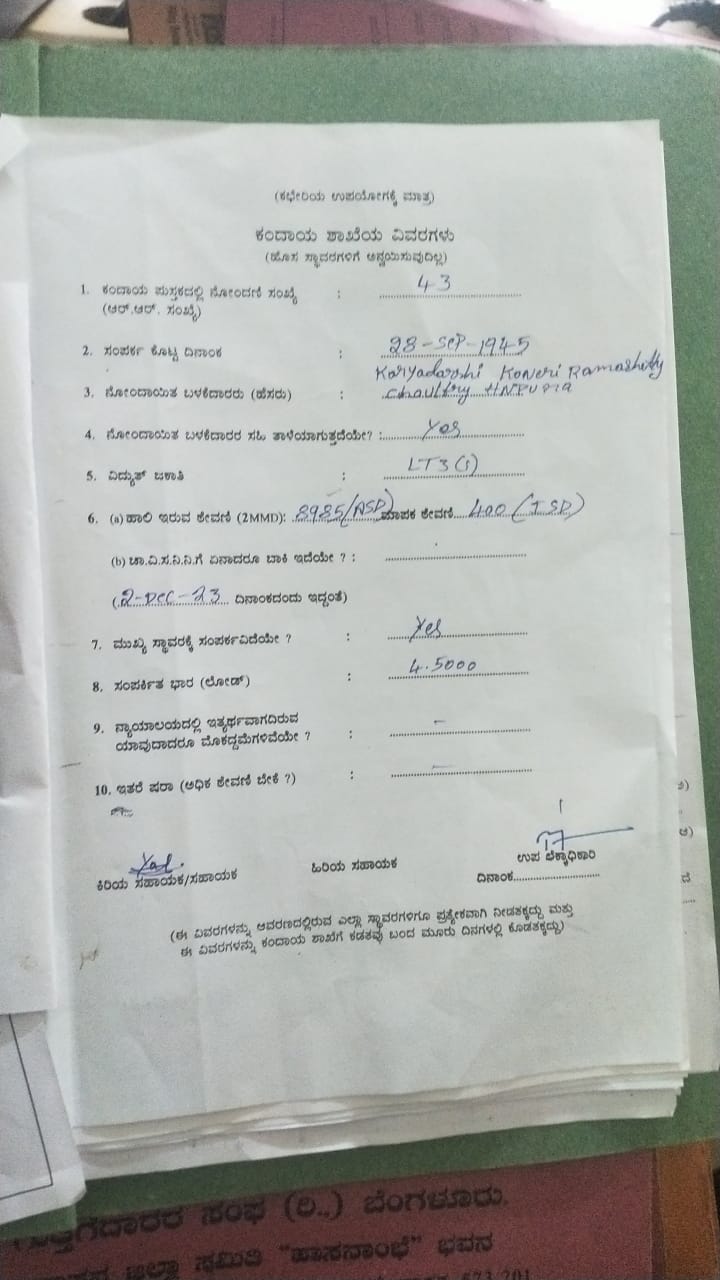 (ಕಛೇರಿಯ ಉಪಯೋಗಕ್ಕೆ ಮಾತ್ರ)
ಕಂದಾಯ ಶಾಖೆಯ ವಿವರಗಳು
(ಹೊಸ ಸ್ಥಾವರಗಳಿಗೆ ಅನ್ವಯಿಸುವುದಿಲ್ಲ)
1. ಕಂದಾಯ ಪುಸ್ತಕದಲ್ಲಿ ನೋಂದಣಿ ಸಂಖ್ಯೆ : 43
(ಆರ್.ಆರ್. ಸಂಖ್ಯೆ)
2. ಸಂಪರ್ಕ ಕೊಟ್ಟ ದಿನಾಂಕ : 28-SeP-1945
Karyadarshi Koneri Ramashetty
3. ನೋಂದಾಯಿತ ಬಳಕೆದಾರರು (ಹೆಸರು) : Chaultry HNPURA
4. ನೋಂದಾಯಿತ ಬಳಕೆದಾರರ ಸಹಿ ತಾಳೆಯಾಗುತ್ತದೆಯೇ? : Yes
5. ವಿದ್ಯುತ್ ಜಕಾತಿ : LT3(i)
6. (a) ಹಾಲಿ ಇರುವ ಠೇವಣಿ (2MMD): 8985/ASD) ಮಾಪಕ ಠೇವಣಿ 400 (ISD)
(b) ಚಾ.ವಿ.ಸ.ನಿ.ನಿ.ಗೆ ಏನಾದರೂ ಬಾಕಿ ಇದೆಯೇ ? :
(2-Dec-23 ದಿನಾಂಕದಂದು ಇದ್ದಂತೆ)
7. ಮುಖ್ಯ ಸ್ಥಾವರಕ್ಕೆ ಸಂಪರ್ಕವಿದೆಯೇ ? : Yes
8. ಸಂಪರ್ಕಿತ ಭಾರ (ಲೋಡ್) : 4.5000
9. ನ್ಯಾಯಾಲಯದಲ್ಲಿ ಇತ್ಯರ್ಥವಾಗದಿರುವ
ಯಾವುದಾದರೂ ಮೊಕದ್ದಮೆಗಳಿವೆಯೇ ? : –
10. ಇತರೆ ಷರಾ (ಅಧಿಕ ಠೇವಣಿ ಬೇಕೆ ?) : –
ಕಿರಿಯ ಸಹಾಯಕ/ಸಹಾಯಕ ಹಿರಿಯ ಸಹಾಯಕ ಉಪ ಲೆಕ್ಕಾಧಿಕಾರಿ
ದಿನಾಂಕ
(ಈ ವಿವರಗಳನ್ನು ಆವರಣದಲ್ಲಿರುವ ಎಲ್ಲಾ ಸ್ಥಾವರಗಳಿಗೂ ಪ್ರತ್ಯೇಕವಾಗಿ ನೀಡತಕ್ಕದ್ದು ಮತ್ತು
ಈ ವಿವರಗಳನ್ನು ಕಂದಾಯ ಶಾಖೆಗೆ ಕಡತವು ಬಂದ ಮೂರು ದಿನಗಳಲ್ಲಿ ಕೊಡತಕ್ಕದ್ದು)
ಸಂಘ (ರಿ..) ಬೆಂಗಳೂರು.
ಜಿಲ್ಲಾ ಸಮಿತಿ "ಹಾಸನಾಂಭೆ" ಭವನ
573 201